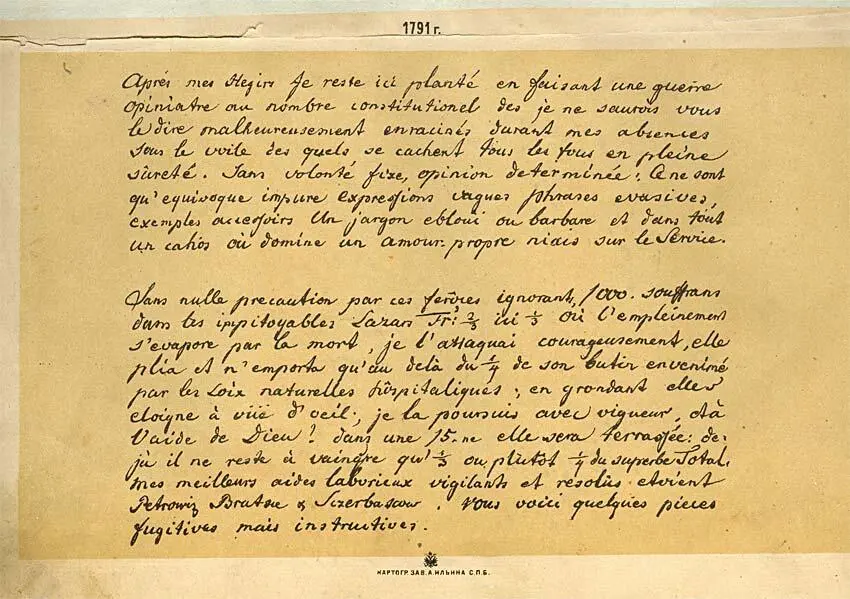 1791 г.
Après mes Hegirs Je reste ici planté en faisant une guerre
opiniatre au nombre constitutionel des je ne saurois vous
le dire malheureusement enracinés durant mes absences
sous le voile des quels se cachent tous les fous en pleine
sûreté. Sans volonté fixe, opinion determinée; Ce ne sont
qu'equivoque impure expressions vagues phrases evasives,
exemples accessoirs Un jargon ebloui ou barbare et dans tout
un cahos où domine un amour-propre niais sur le Service.
Sans nulle precaution par ces ferôces ignorant, 1000. souffrans
dans les impitoyables Lazars 2/3 ici 1/3 où l'empleinement
s'evapore par la mort, je l'attaquai courageusement, elle
plia et n'emporta qu'au delà du 1/4 de son butin envenimé
par les Loix naturelles hôspitaliques; en grondant elle s'
eloigne à vüe d'oeil; je la poursuis avec vigueur, et à
l'aide de Dieu! dans une 15-ne elle sera terrassée: de-
jà il ne reste à vaingre qu' 1/3 ou plutot 1/4 du superbe Total,
mes meilleurs aides laborieux vigilants et resolus etoient
Petrowiz Bratse & Sczerbascow. Vous voici quelques pieces
fugitives mais instructives.
КАРТОГР. ЗАВ. А. ИЛЬИНА С.П.Б.